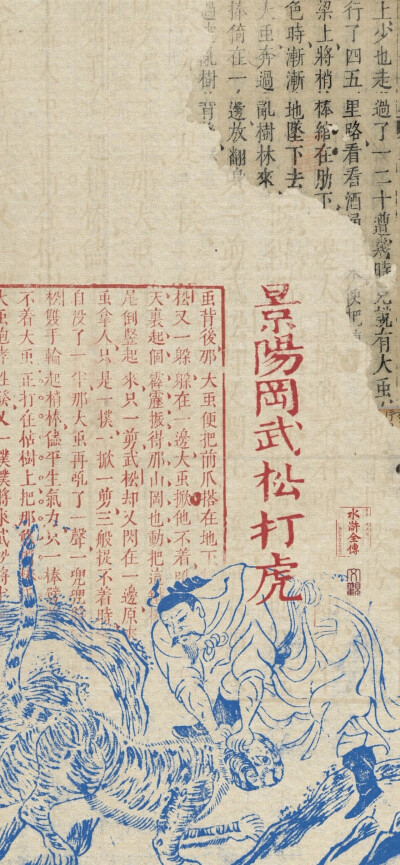 上少也走過了一二十遭幾時見說有大虫
行了四五里路看看酒
梁上將梢棒綰在肋下
色時漸漸地墜下去
大虫奔過亂樹林來
棒倚在一邊放翻身
過亂樹背
景陽岡武松打虎
水滸全傳
虫背後那大虫便把前爪搭在地下
松又一躲躲在一邊大虫掀他不着
天裏起個霹靂振得那山岡也動把這
尾倒豎起來只一剪武松却又閃在一邊原來
虫拿人只是一撲一掀一剪三般捉不着時
自没了一半那大虫再吼了一聲一兜兜
松雙手輪起梢棒儘平生氣力只一棒
不着大虫正打在枯樹上把那
大虫咆哮性發又一撲撲將來武松